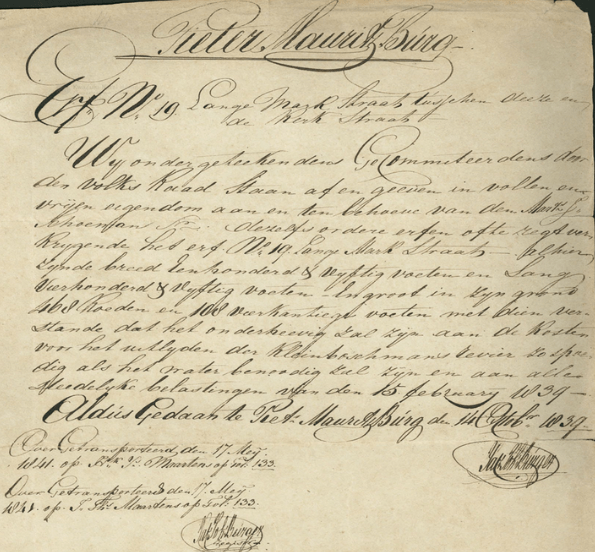 Pieter Mauritz Burg
Erf No. 19 Lange Mark Straat tusschen deeze en
de Kerk Straat
Wy ondergeteekendens GeCommiteerdens door
den volks Raad Staan af en geeven in vollen en
vryen eigendom aan en ten behoeve van den
Schoeman deszelfs ordere erfen ofte regt ver
krygende het erf No. 19 Lang Mark Straat
zynde breed Eenhonderd & vyftig voeten en Lang
Vierhonderd & vyftig voeten Ingroot in zyn grond
468 Roeden en 108 vierkantige voeten met dien ver
stande dat het onderheevig zal zyn aan de Kosten
voor het uitlyden der Kleinboschmans revier zo spoe
dig als het water benoodig zal zyn en aan allen
Steedelyke belastingen van den 15 february 1839
Aldus Gedaan te Piet. Mauritz Burg den 14 1839
Over Getransporteerd den 17 Mey
1841 op Maartens op fol. 133
Over Getransporteerd den 17 Mey
1841 op Maartens op Fol. 133
Burger
Burger